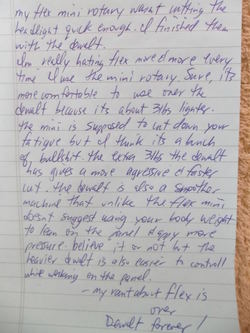 my flex mini rotary wasnt cutting the
headlight quick enough. I finished them
with the dewalt.
Im really hating flex more & more every
time I use the mini rotary. Sure, its
more comfortable to use over the
dewalt because its about 3lbs lighter.
the mini is supposed to cut down your
fatigue but I think its a bunch
of bullshit. the extra 3lbs the dewalt
has gives a more agressive & faster
cut. the dewalt is also a smoother
machine that unlike the flex mini
doesnt suggest using your body weight
to lean on the panel & apply more
pressure. believe it or not bt the
heavier dewalt is also easier to controll
while working on the panel.
- my rant about flex is
over
Dewalt forever!